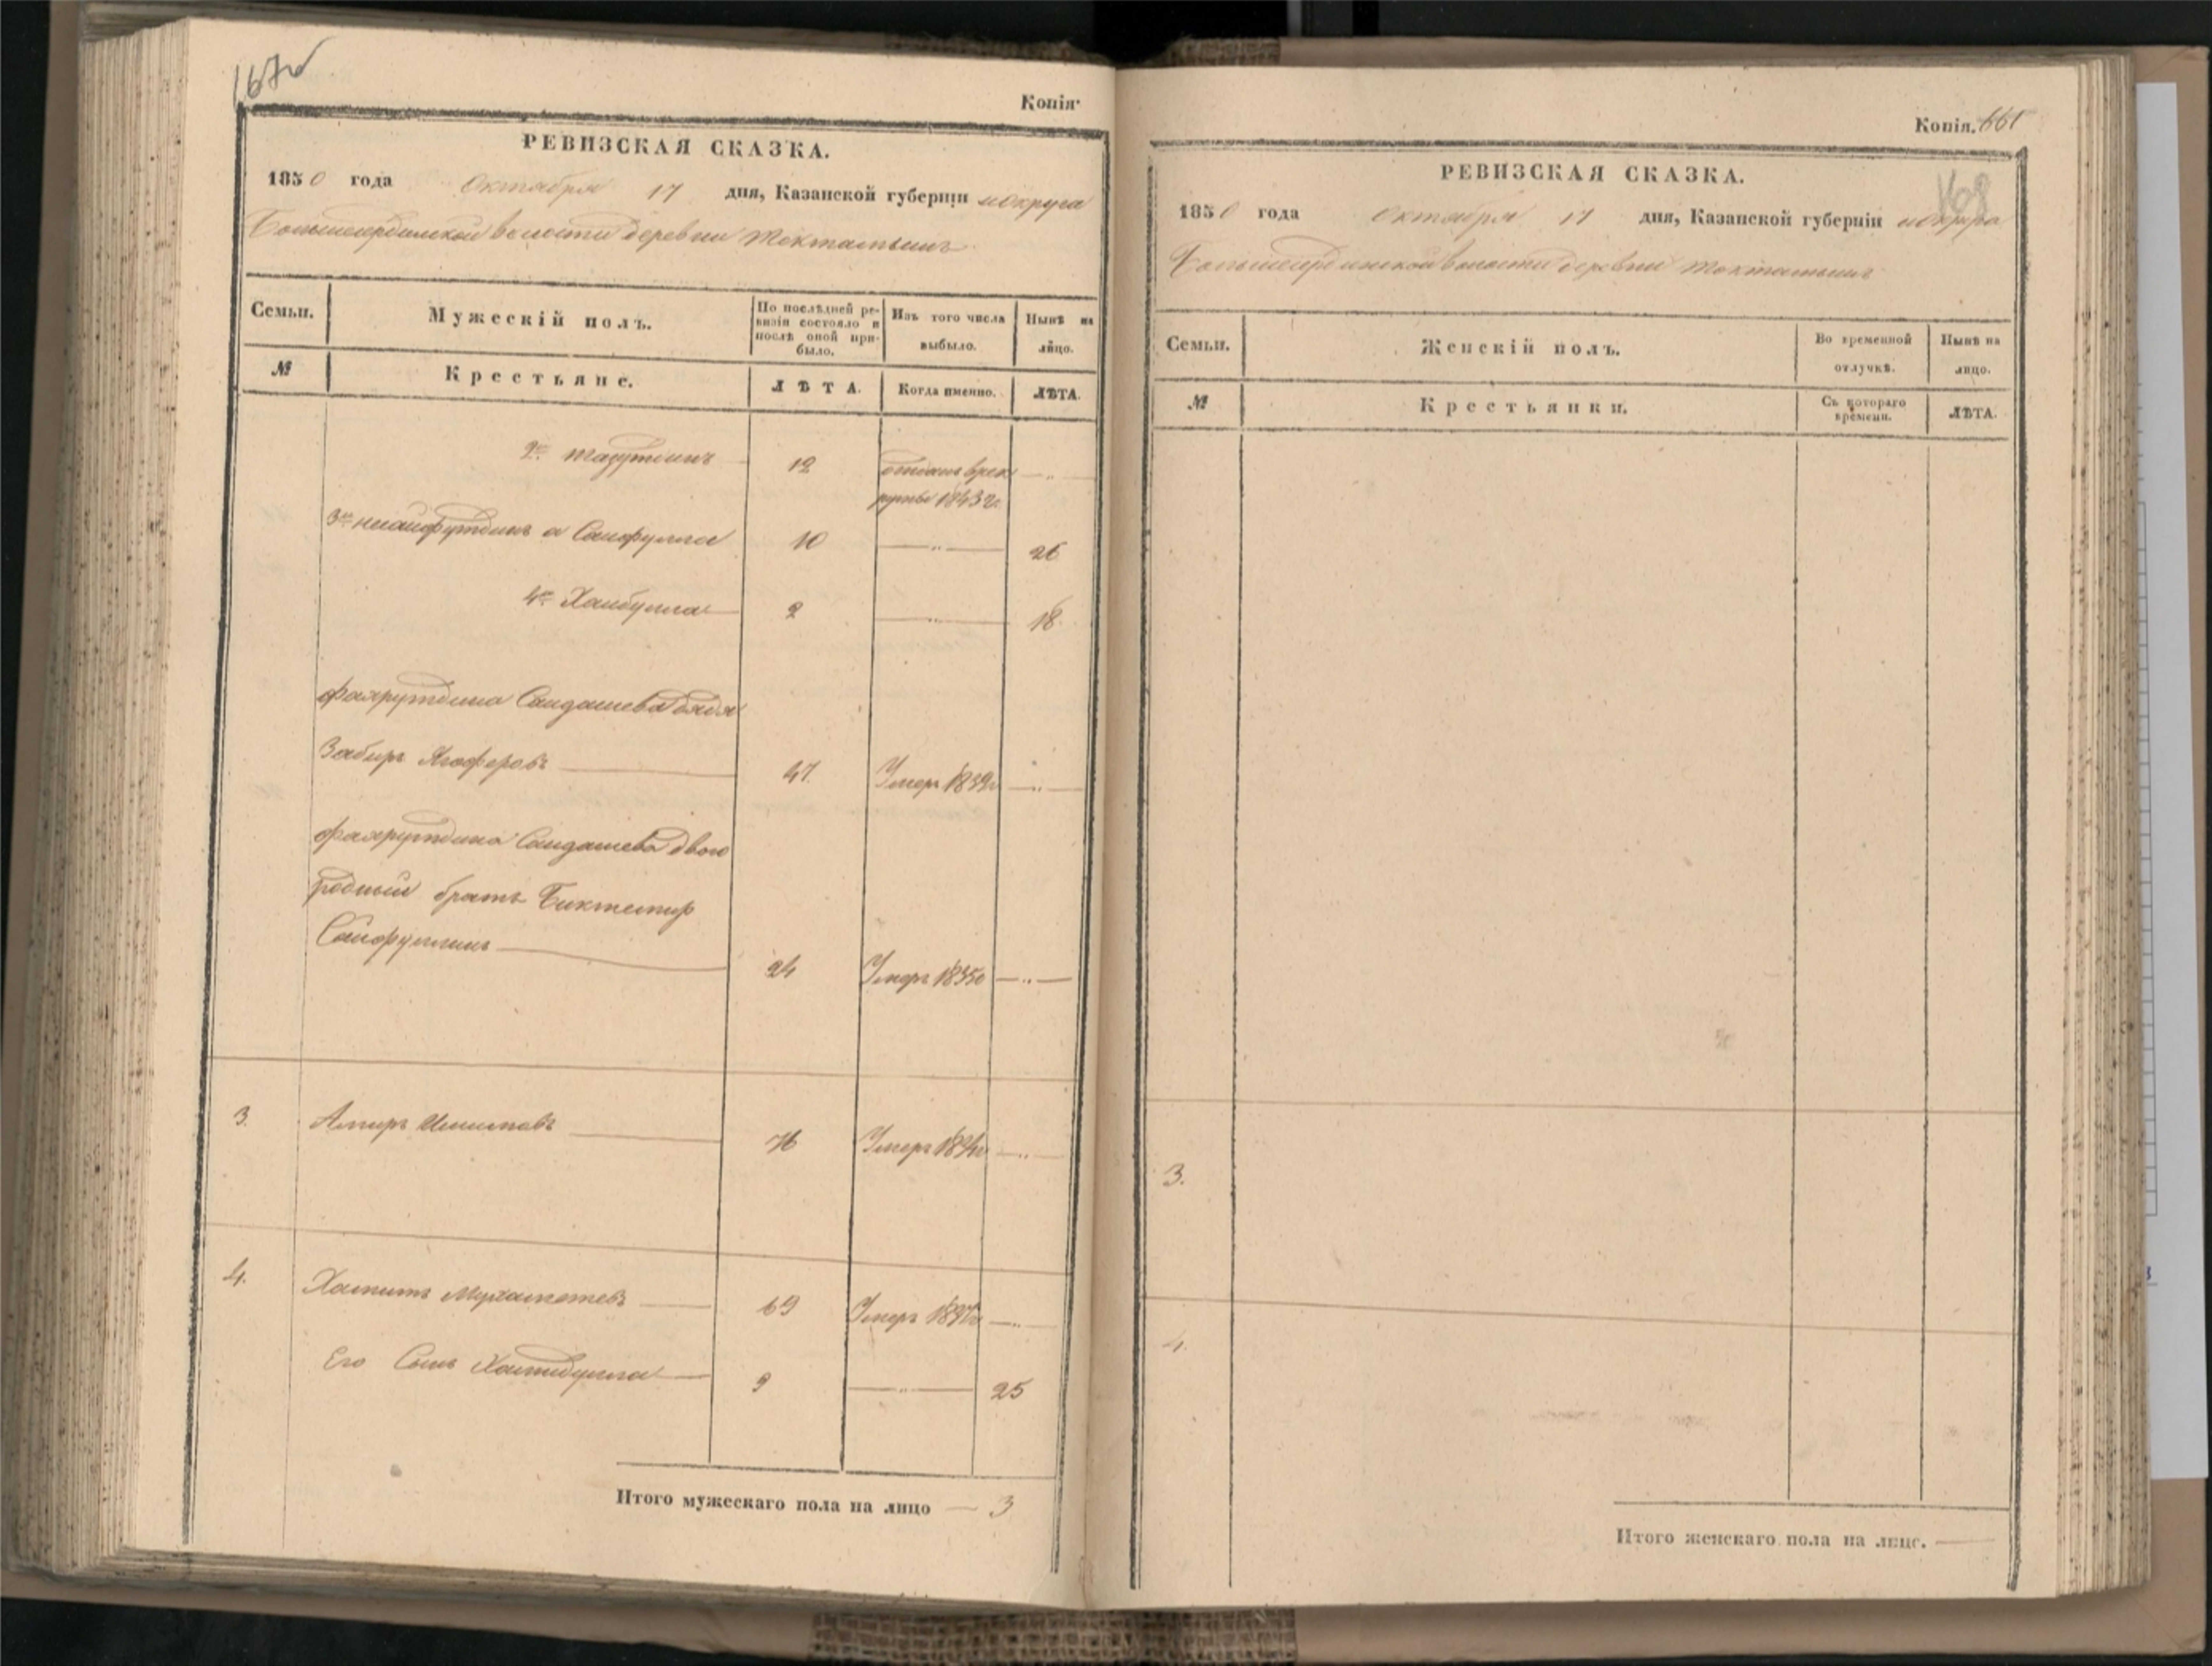 167об
Копія
РЕВИЗСКАЯ СКАЗКА.
1850 года Октября 17 дня, Казанской губерніи и округа
волости деревни Токтамышъ
Семьи. Мужескій полъ. По послѣдней ревизіи состояло и послѣ оной прибыло. Изъ того числа выбыло. Нынѣ на лицо.
№ Крестьяне. ЛѢТА. Когда именно. ЛѢТА.
2й Тазутдинъ 12 отданъ врек
руты 1843 г.
3й а Сайфулла 10 — " — 26
4й Хайбулла 2 — " — 18
Фахрутдина Саидашева дядя
Забиръ Ягоферовъ 47. Умеръ 1839 г — " —
Фахрутдина Саидашева двою
родный братъ Биктемир
Сайфуллинъ 24 Умеръ 1835 г — " —
3. Амиръ 76 Умеръ — " —
4. Хамитъ Мухаметевъ 69 Умеръ — " —
Его Сынъ Хамидулла 9 — " — 25
Итого мужескаго пола на лицо — 3
Копія. 661
168
РЕВИЗСКАЯ СКАЗКА.
1850 года Октября 17 дня, Казанской губерніи и округа
волости деревни Токтамышъ
Семьи. Женскій полъ. Во временной отлучкѣ. Нынѣ на лицо.
№ Крестьянки. Съ котораго времени. ЛѢТА.
3.
4.
Итого женскаго пола на лицо. —